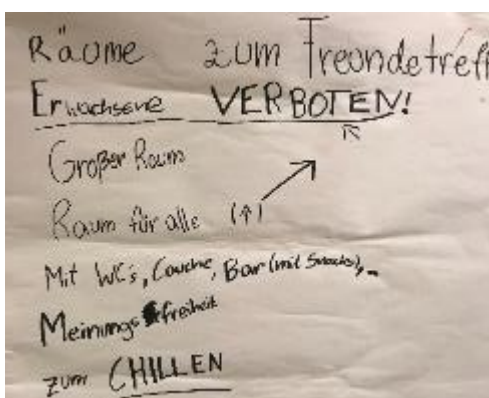 Räume zum Freundetreff
Erwachsene VERBOTEN!
Großer Raum
Raum für alle (↑)
Mit WC's, Couche, Bar (mit Snacks),...
Meinungsfreiheit
zum CHILLEN